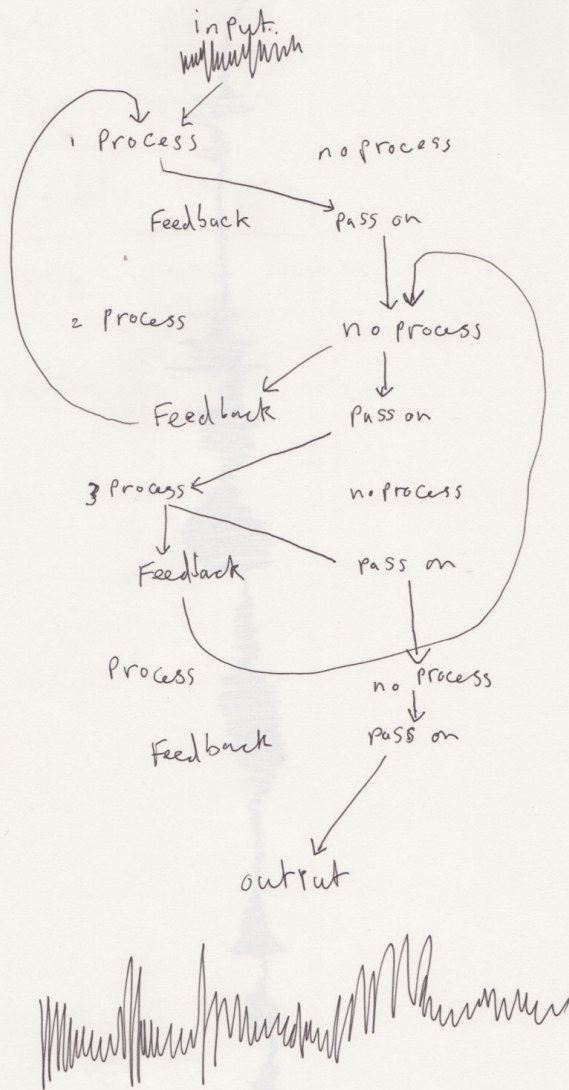 input
1 Process no process
Feedback pass on
2 Process no process
Feedback Pass on
3 Process no process
Feedback pass on
Process no process
Feedback pass on
output